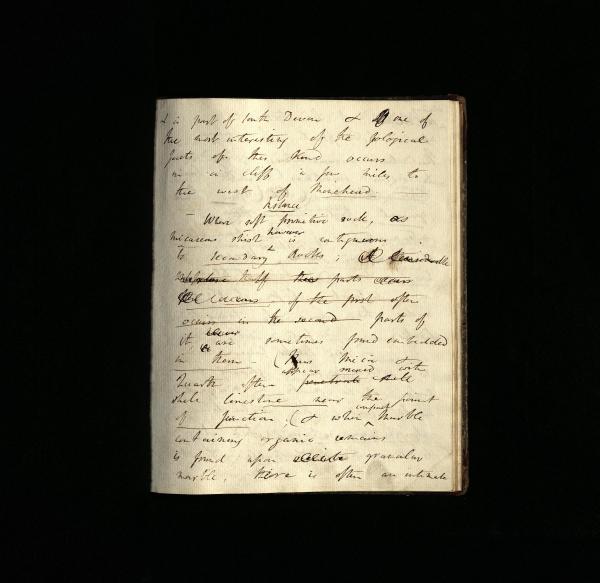 & in part of South Devon & one of
the most interesting of the geological
facts of this kind occurs
in a cliff a few miles to
the west of
instance
- Where soft primitive rock, as
micaceous shist however is contiguous
to secondary Rocks;
parts
of the first often
occurs in the second parts of
it occur are sometimes found embedded
in them. (Thus Mica &
appear mixed with
Quartz often penetrate
shell limestone near the point
of junction; (& when compact Marble
containing organic remains
is found upon granular
marble, there is often an intimate